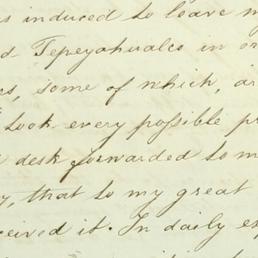 s induced to leave m
d Tepeyahualco in or
es, some of which, ar
took every possible pr
desk forwarded to m
y, that to my great
ceived it. In daily exp